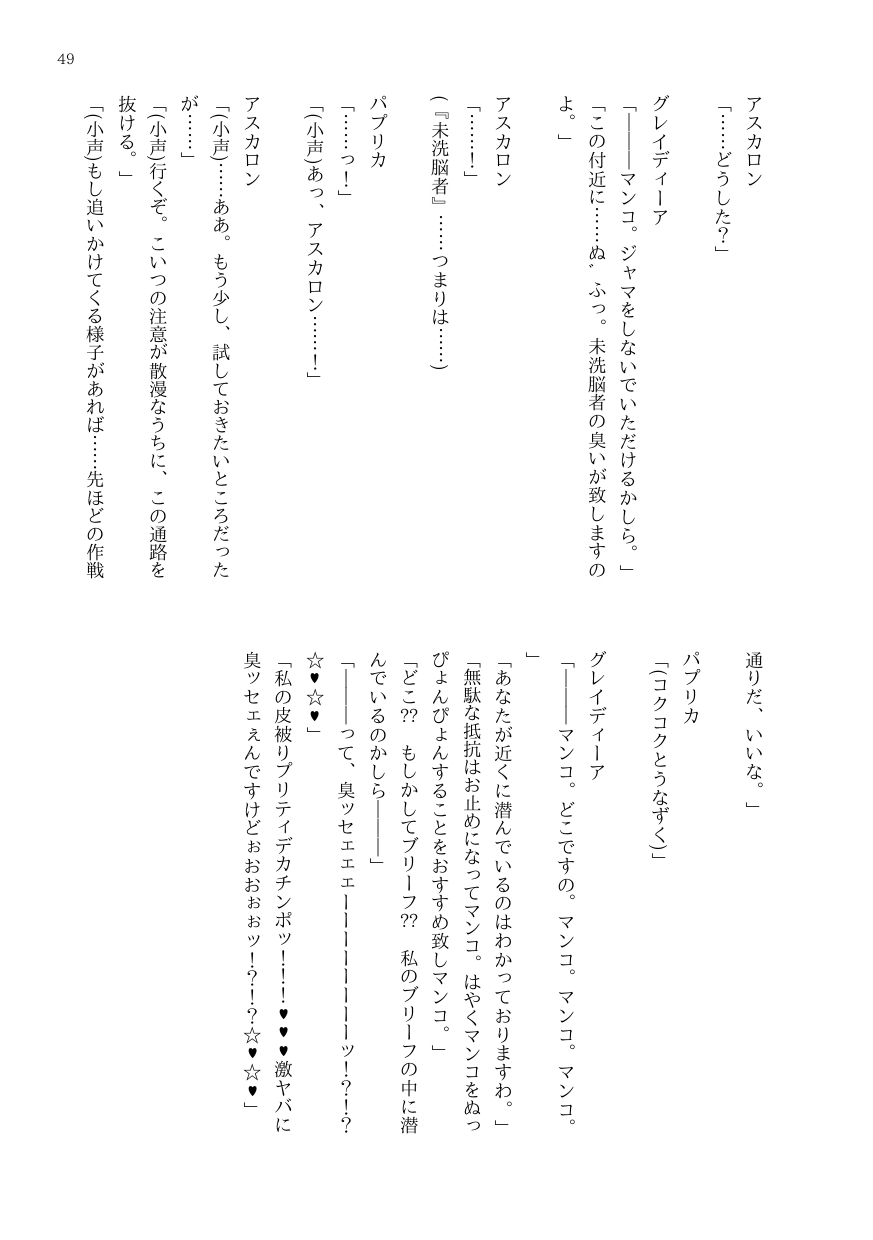 49
アスカロン
「……どうした？」
グレイディーア
「―――マンコ。ジャマをしないでいただけるかしら。」
「この付近に……ぬ゛ふっ。未洗脳者の臭いが致しますの
よ。」
アスカロン
「……！」
(『未洗脳者』……つまりは……)
パプリカ
「……っ！」
「(小声)あっ、アスカロン……！」
アスカロン
「(小声)……ああ。もう少し、試しておきたいところだった
が……」
「(小声)行くぞ。こいつの注意が散漫なうちに、この通路を
抜ける。」
「(小声)もし追いかけてくる様子があれば……先ほどの作戦
通りだ、いいな。」
パプリカ
「(コクコクとうなずく)」
グレイディーア
「―――マンコ。どこですの。マンコ。マンコ。マンコ。
」
「あなたが近くに潜んでいるのはわかっておりますわ。」
「無駄な抵抗はお止めになってマンコ。はやくマンコをぬっ
ぴょんぴょんすることをおすすめ致しマンコ。」
「どこ??　もしかしてブリーフ??　私のブリーフの中に潜
んでいるのかしら―――」
「―――って、臭ッセェェェーーーーーーーーッ！？！？
☆♥☆♥」
「私の皮被りプリティデカチンポッ！！！♥♥♥激ヤバに
臭ッセェぇんですけどぉおおぉぉッ！？！？☆♥☆♥」